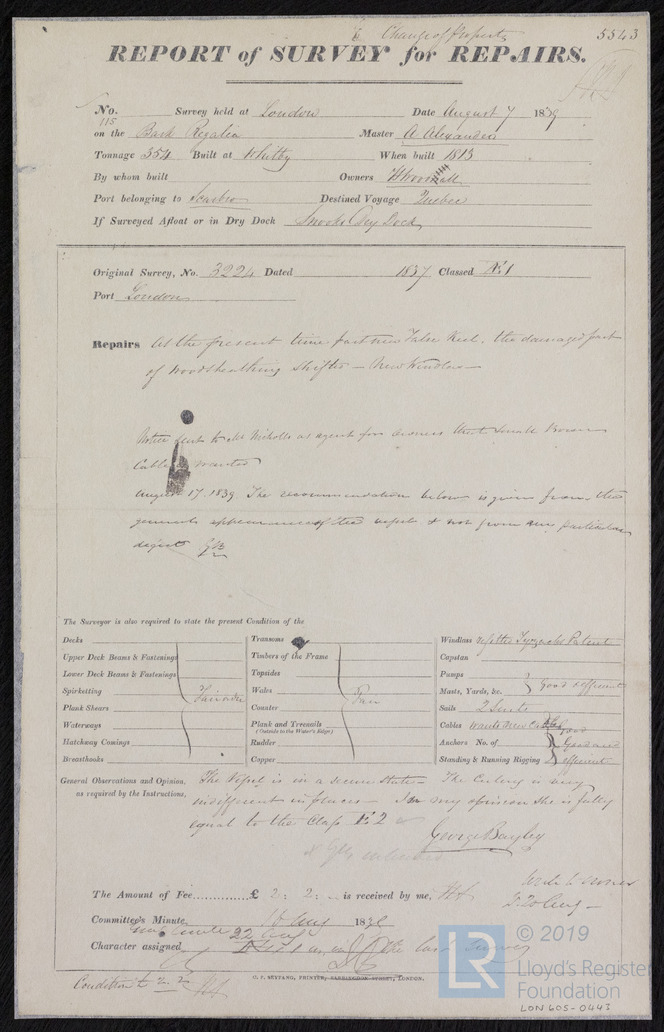 Change of property
5543
REPORT of SURVEY for REPAIRS.
No. Survey held at London Date August 7 1839
115
on the Bark Regalia Master A Alexander
Tonnage 354 Built at Whitby When built 1813
By whom built Owners
Port belonging to Scarbro Destined Voyage Quebec
If Surveyed Afloat or in Dry Dock Snooks Dry Dock
Original Survey, No. 3224 Dated 1837 Classed Æ 1
Port London
Repairs At the present time part new False Keel. the damaged part
of Woodsheathing shifted - New Windlass
Notice sent to Mr Nicholls as agent for owners that Small Bower
Cable is wanted
August 17. 1839 The recommendation below is given from the
general appearance of the vessel & not from any particular
defects GB
The Surveyor is also required to state the present Condition of the
Decks
Upper Deck Beams & Fastenings
Lower Deck Beams & Fastenings
Spirketting
Plank Shears
Waterways
Hatchway Comings
Breasthooks
Transoms
Timbers of the Frame
Topsides
Wales Fair
Counter
Plank and Treenails
(Outside to the Water's Edge)
Rudder
Copper
Windlass Tyzacks Patent
Capstan
Pumps
Masts, Yards, &c. Good & efficient
Sails 2 Suits
Cables wants New
Anchors No. of Good and
Standing & Running Rigging efficient
General Observations and Opinion, The Vessel is in a secure state - The Ceiling is very
as required by the Instructions, indifferent in places - In my opinion she is fully
equal to the Class Æ 2
George Bayley
The Amount of Fee.............. £ 2 : 2 : - is received by me,
Committee's Minute 16 Aug 1839
20 Aug
Character assigned
O. P. SKYTANG, PRINTER, FARRINGDON STREET, LONDON.
© 2019
LR
Lloyd's Register
Foundation
LON 605-0443